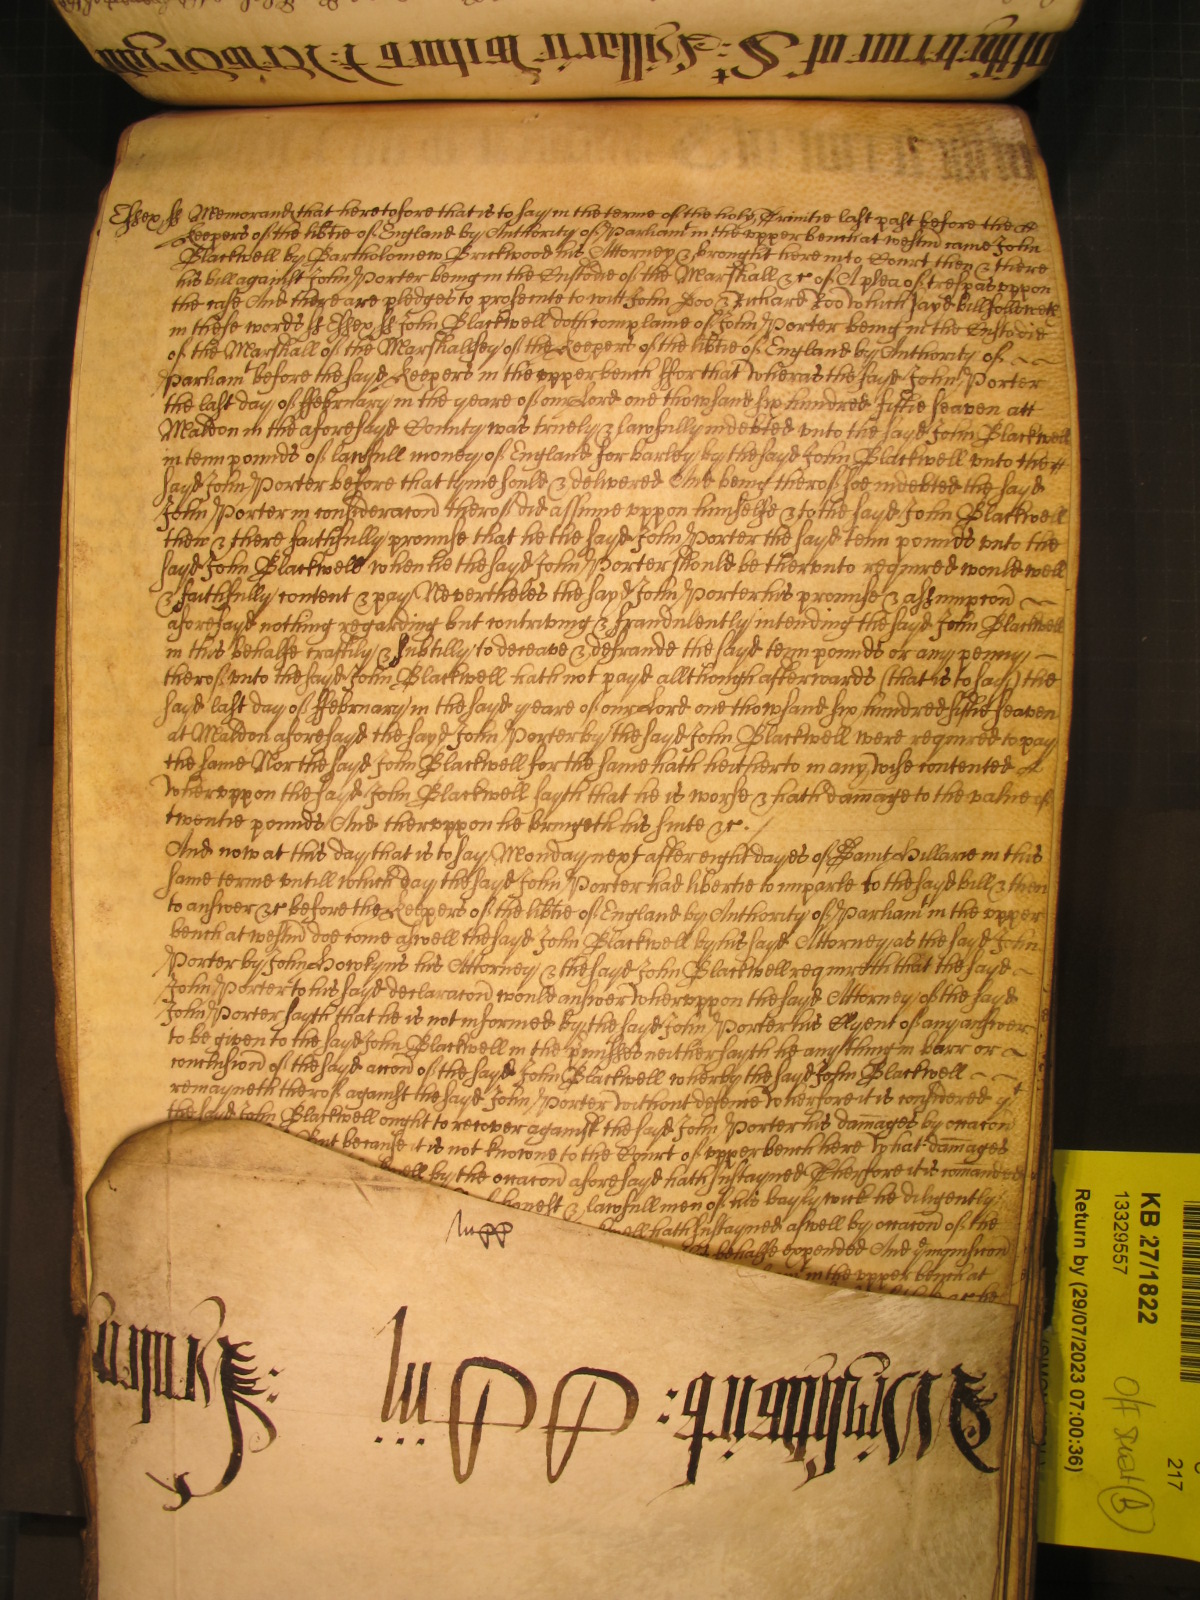 Essex ss Memorand that heretofore that is to say in the terme of the holy Trinitie last past before the
Keepers of the libtie of England by Authority of Parliamt in the upper bench at westm came John
Blackwell by Bartholomew Brickwood his Attorney & brought here into Court then & there
his bill against John Porter being in the Custodie of the Marshall &c of A plea of trespas uppon
the case And there are pledges to prosecute to witt John Doo & Richard Roo which sayd bill followeth
in these words ss Essex ss John Blackwell doth complaine of John Porter being in the Custodie
of the Marshall of the Marshallsey of the Keepers of the libtie of England by Authority of
Parliamt before the sayd Keepers in the upper bench ffor that wheras the sayd John Porter
the last day of ffebruary in the yeare of our Lord one thowsand six hundred fiftie seaven att
Maldon in the aforesayd County was truely & lawfully indebted unto the sayd John Blackwell
in tenn pounds of lawfull money of England for barley by the sayd John Blackwell unto the
sayd John Porter before that tyme sould & delivered And being therof soe indebted the sayd
John Porter in consideracon therof did assume uppon himselfe & to the sayd John Blackwell
then & there faithfully promise that he the sayd John Porter the sayd tenn pounds unto the
sayd John Blackwell when he the sayd John Porter should be therunto required would well
& faithfully content & pay Nevertheles the sayd John Porter his promise & assumpcon
aforesayd nothing regarding but contriving & fraudulently intending the sayd John Blackwell
in this behalfe craftily & subtilly to deceave & defraude the sayd tenn pounds or any penny
therof unto the sayd John Blackwell hath not payd allthough afterwards (that is to say) the
sayd last day of ffebruary in the sayd yeare of our Lord one thowsand six hundred fiftie seaven
at Maldon aforesayd the sayd John Porter by the sayd John Blackwell were required to pay
the same Nor the sayd John Blackwell for the same hath heitherto in any wise contented
wheruppon the sayd John Blackwell sayth that he is worse & hath damage to the value of
twentie pounds And theruppon he bringeth his suite &c.
And now at this day that is to say Monday next after eight dayes of Saint Hillarie in this
same terme untill which day the sayd John Porter had libertie to imparle to the sayd bill & then
to answer &c before the Keepers of the libtie of England by Authority of Parliamt in the upper
bench at westm doe come aswell the sayd John Blackwell by his sayd Attorney as the sayd John
Porter by John Howkyns his Attorney & the sayd John Blackwell requireth that the sayd
John Porter to his sayd declaracon would answer wheruppon the sayd Attorney of the sayd
John Porter sayth that he is not informed by the sayd John Porter his Clyent of any answer
to be given to the sayd John Blackwell in the pmisses neither sayth he any thing in barr or
conclusion of the sayd accon of the sayd John Blackwell wherby the sayd John Blackwell
remayneth therof against the sayd John Porter without defence wherfore it is considered yt
the sayd John Blackwell ought to recover against the sayd John Porter his damages by occacon
But because it is not knowne to the Court of upper bench here what damages
well by the occacon aforesayd hath sustayned Therfore it is comanded
honest & lawfull men of his baylywick he diligently
well hath sustayned aswell by occacon of the
behalfe expended And the inquisicon
in the upper bench at
KB 27/1822
13329557
Return by (29/07/2023 07:00:36)
217